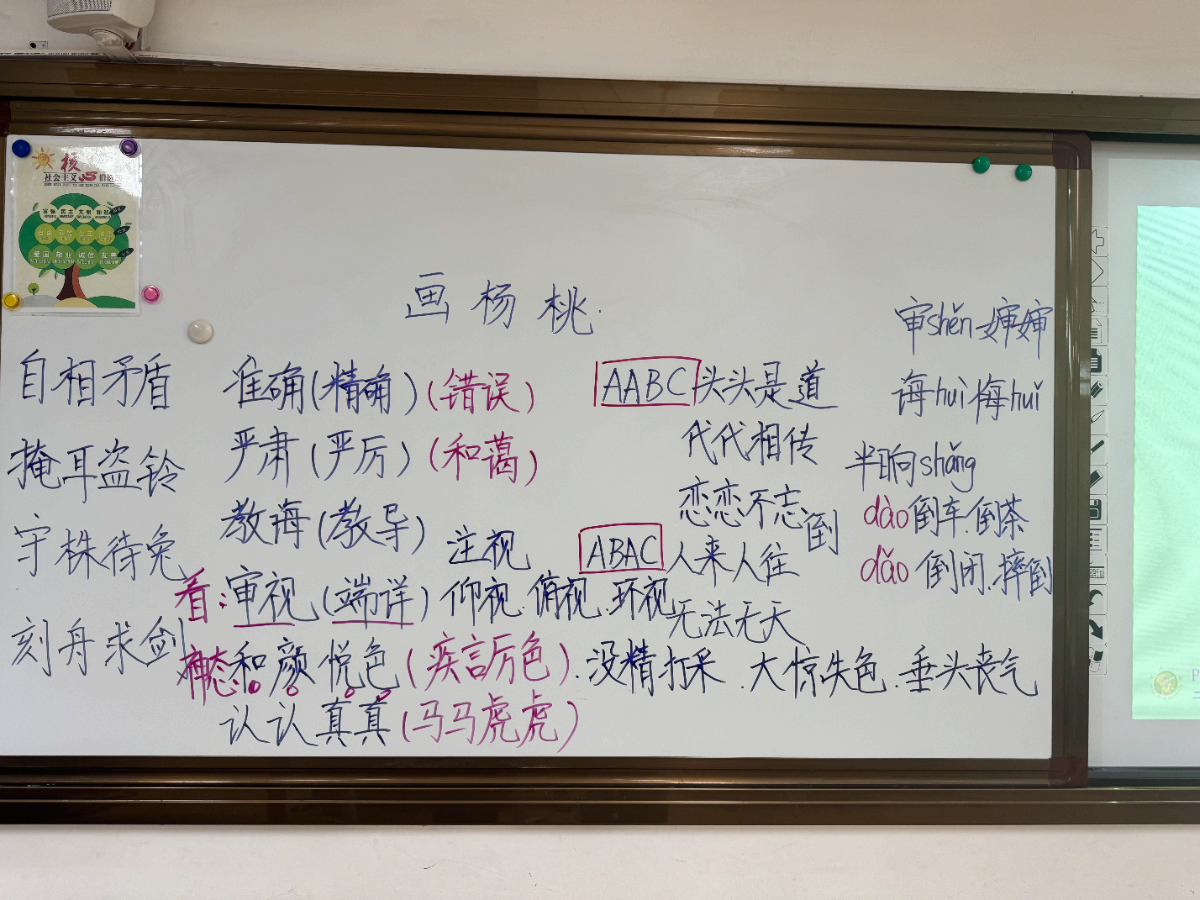 核
社会主义
富强 民主 文明
爱国 敬业 诚信 友善
画杨桃
自相矛盾
掩耳盗铃
守株待兔
刻舟求剑
准确(精确)(错误)
严肃(严厉)(和蔼)
教诲(教导)
注视
看:审视(端详)仰视.俯视.环视
神态:和颜悦色(疾言厉色).没精打采.大惊失色.垂头丧气
认认真真(马马虎虎)
AABC 头头是道
代代相传
恋恋不忘
ABAC 人来人往
无法无天
审shěn 婶婶
诲huì 悔huǐ
半晌shǎng
倒
dào 倒车.倒茶
dǎo 倒闭.摔倒